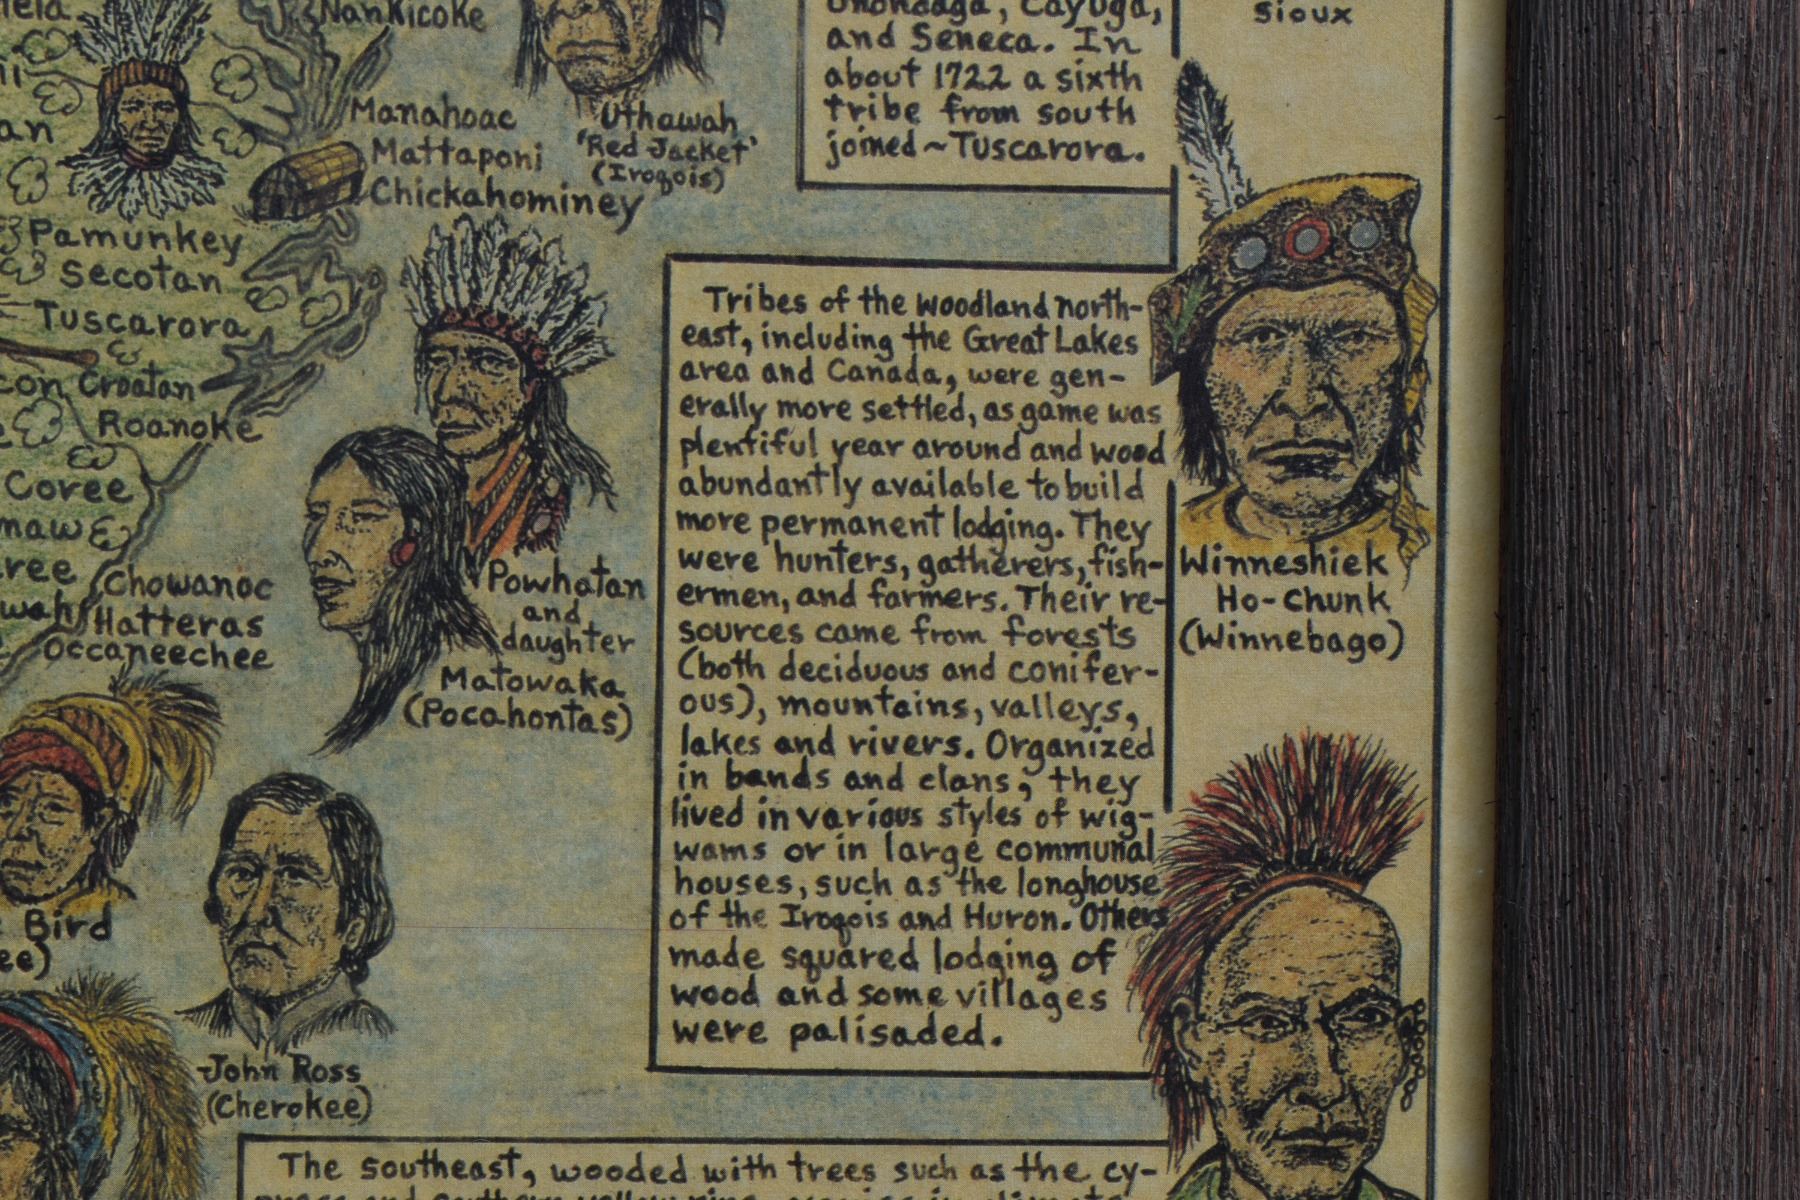 Nankicoke
Manahoac
Mattaponi
Chickahominey
Pamunkey
Secotan
Tuscarora
Croatan
Roanoke
Coree
Chowanoc
Hatteras
Occaneechee
Uthawah
'Red Jacket'
(Iroqois)
Onondaga, Cayuga,
and Seneca. In
about 1722 a sixth
tribe from south
joined ~ Tuscarora.
Sioux
Powhatan
and
daughter
Matowaka
(Pocahontas)
Bird
John Ross
(Cherokee)
Tribes of the woodland north-
east, including the Great Lakes
area and Canada, were gen-
erally more settled, as game was
plentiful year around and wood
abundantly available to build
more permanent lodging. They
were hunters, gatherers, fish-
ermen, and farmers. Their re-
sources came from forests
(both deciduous and conifer-
ous), mountains, valleys,
lakes and rivers. Organized
in bands and clans, they
lived in various styles of wig-
wams or in large communal
houses, such as the longhouse
of the Iroqois and Huron. Others
made squared lodging of
wood and some villages
were palisaded.
Winneshiek
Ho-Chunk
(Winnebago)
The Southeast, wooded with trees such as the cy-